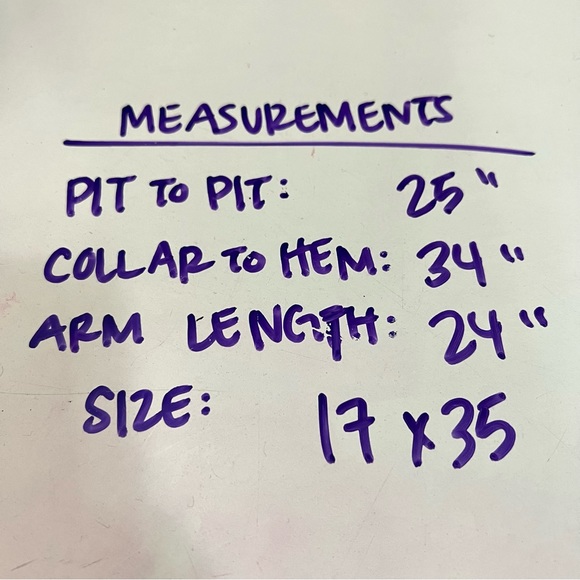 MEASUREMENTS
PIT TO PIT: 25"
COLLAR TO HEM: 34"
ARM LENGTH: 24"
SIZE: 17 x 35